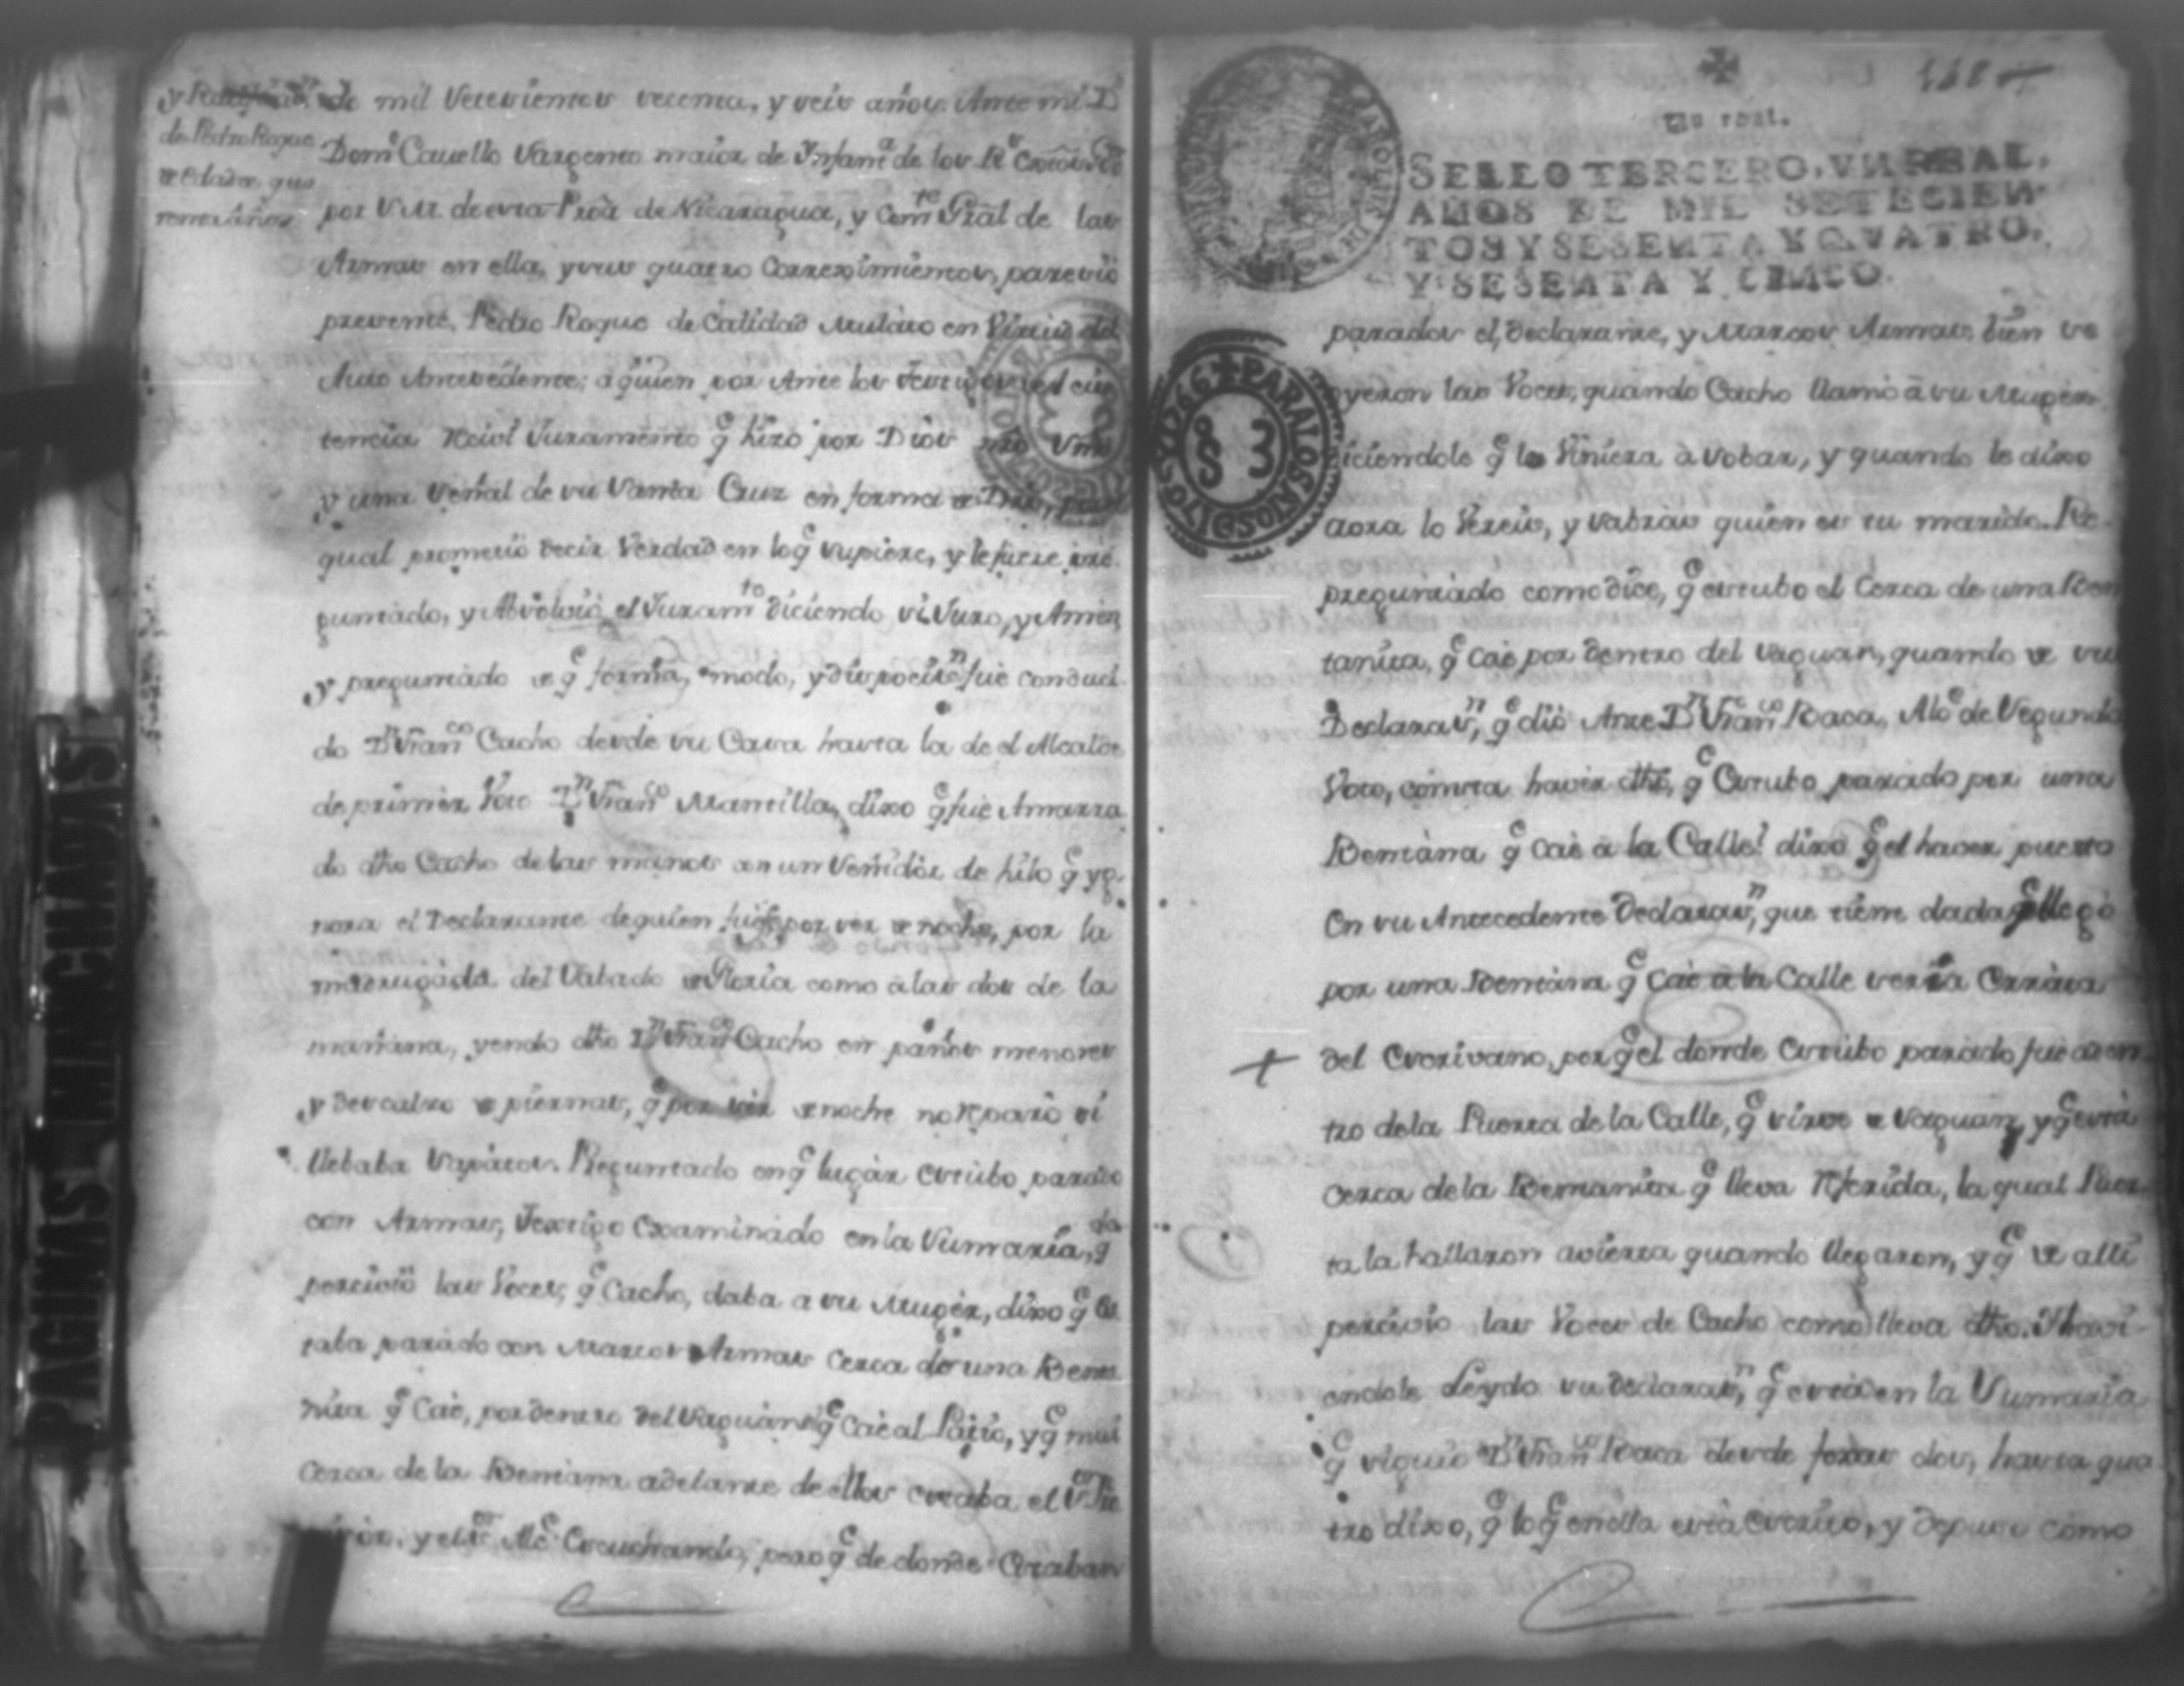 y Ratificaⁿ
de Pedro Roque
de Edad de que
de mil Setesientos sesenta, y seis años. Ante mi Dⁿ
Domᵒ Cavello Sargento maior de Ynfamᵃ de los Rˢ
por S.M. de esta Proâ de Nicaragua, y Comᵗᵉ Gral de las
Armas en ella, y sus quatro Correximientos, paresio
presente, Pedro Roque de Calidad Mulato en Virtud del
Auto Antesedente; a quien por Ante los testigos
tencia Reciví Juramento q̃ hizo por Dios nro Sʳ
y una Señal de su Santa Cruz en forma de Dro, por
qual prometio decir Verdad en lo q̃ supiere, y le fuere pre
guntado, y Absolvio el Juramᵗᵒ diciendo si Juro, y Amen,
y preguntado de q̃ forma, modo, y disposicⁿ fue conduci
do Dⁿ Franᶜᵒ Cacho desde su Casa hasta la de el Alcalde
de primer Voto Dⁿ Franᶜᵒ Mantilla, dixo q̃ fue Amarra
do dho Cacho de las manos con un Señidor de hilo q̃ yg
nora el Declarante de quien fuese por ser de noche, por la
madrugada del Sabado de Gloria como a las dos de la
mañana, yendo dho Dⁿ Franᶜᵒ Cacho en paños menores
y descalzo de piernas, q̃ por ser de noche no reparò si
llebaba Sapatos. Preguntado en q̃ lugar estubo parado
con Armas, testigo examinado en la Sumaria, q̃
percivio las Voces, q̃ Cacho, daba a su Muger, dixo q̃ es
taba parado con Marcos Armas cerca de una Benta
nita q̃ Cae, por dentro del Saguan q̃ Cae al Patio, y q̃ mui
Cerca de la Bentana adelante de ellos estaba el Sʳ The
y el Sʳ Alᵉ Escuchando, pero q̃ de donde Estaban
168
Un real.
SELLO TERCERO, VN REAL,
AÑOS DE MIL SETECIEN
TOS Y SESENTA Y QVATRO,
Y SESENTA Y CINCO.
PARA LOS AÑOS D 1765 Y 1766
S 3
parados el, declarante, y Marcos Armas, bien se
oyeron las Voces, quando Cacho llamo à su Muger
diciendole q̃ lo Viniera à sobar, y quando le dixo
aora lo Vereis, y sabràs quien es tu marido. Re
preguntado como dice, q̃ estubo el Cerca de una Ben
tanita, q̃ Cae por dentro del saguan, quando de su
Declarasⁿ, q̃ dio Ante Dⁿ Franᶜᵒ Baca, Alᵉ de Segundo
Voto, consta haver dho, q̃ Estubo parado por una
Bentàna q̃ Cae à la Calle? dixo q̃ el haver puesto
En su Antecedente Declarasⁿ, que tiene dada q̃ llegò
por una Bentàna q̃ Cae a la Calle serìa Erràta
del Escrivano, por q̃ el donde Estubo parado fue aden
tro de la Puerta de la Calle, q̃ sirve de Saguan, y q̃ està
cerca de la Bentanita q̃ lleva Referida, la qual Puer
ta la hallaron avierta quando llegaron, y q̃ de alli
percivio las Voces de Cacho como lleva dho. Y havi
endole Leydo su declarasⁿ, q̃ està en la Sumaria
q̃ siguio Dⁿ Franᶜᵒ Baca desde foxas dos, hasta qua
tro dixo, q̃ lo q̃ en ella està escrito, y depuso como